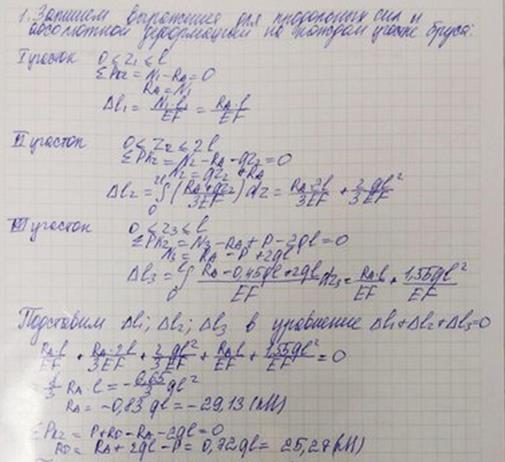 1. Запишем выражения для продольных сил и
абсолютной деформаций на каждом участке бруса:
I участок 0≤z₁≤l
ΣPkz = N₁-RA = 0
RA = N₁
Δl₁ = N₁·l/EF = RA·l/EF
II участок 0≤z₂≤2l
ΣPkz = N₂-RA-qz₂=0
N₂ = qz₂+RA
Δl₂ = ∫₀²ˡ (RA+qz₂/3EF) dz = RA·2l/3EF + 2ql²/3EF
III участок 0≤z₃≤l
ΣPkz = N₃-RA+P-2ql=0
N₃ = RA-P+2ql
Δl₃ = ∫₀ˡ RA-0,45ql+2ql/EF dz₃ = RA·l/EF + 1,55ql²/EF
Подставим Δl₁; Δl₂; Δl₃ в уравнение Δl₁+Δl₂+Δl₃=0
RA·l/EF + RA·2l/3EF + 2ql²/3EF + RA·l/EF + 1,55ql²/EF = 0
RA l = ql²
RA = -0,83 ql = -29,13 (кН)
ΣPkz = P+RD-RA-2ql=0
RD = RA+2ql-P = 0,72ql = 25,27 (кН)